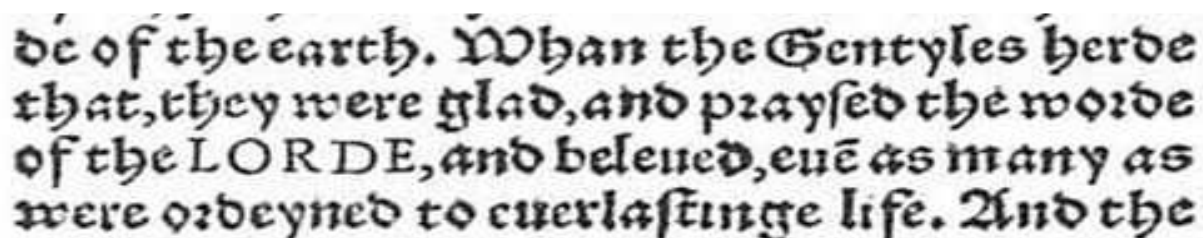 de of the earth. Whan the Gentyles herde
that, they were glad, and prayſed the worde
of the LORDE, and beleued, euē as many as
were ordeyned to euerlaſtinge life. And the